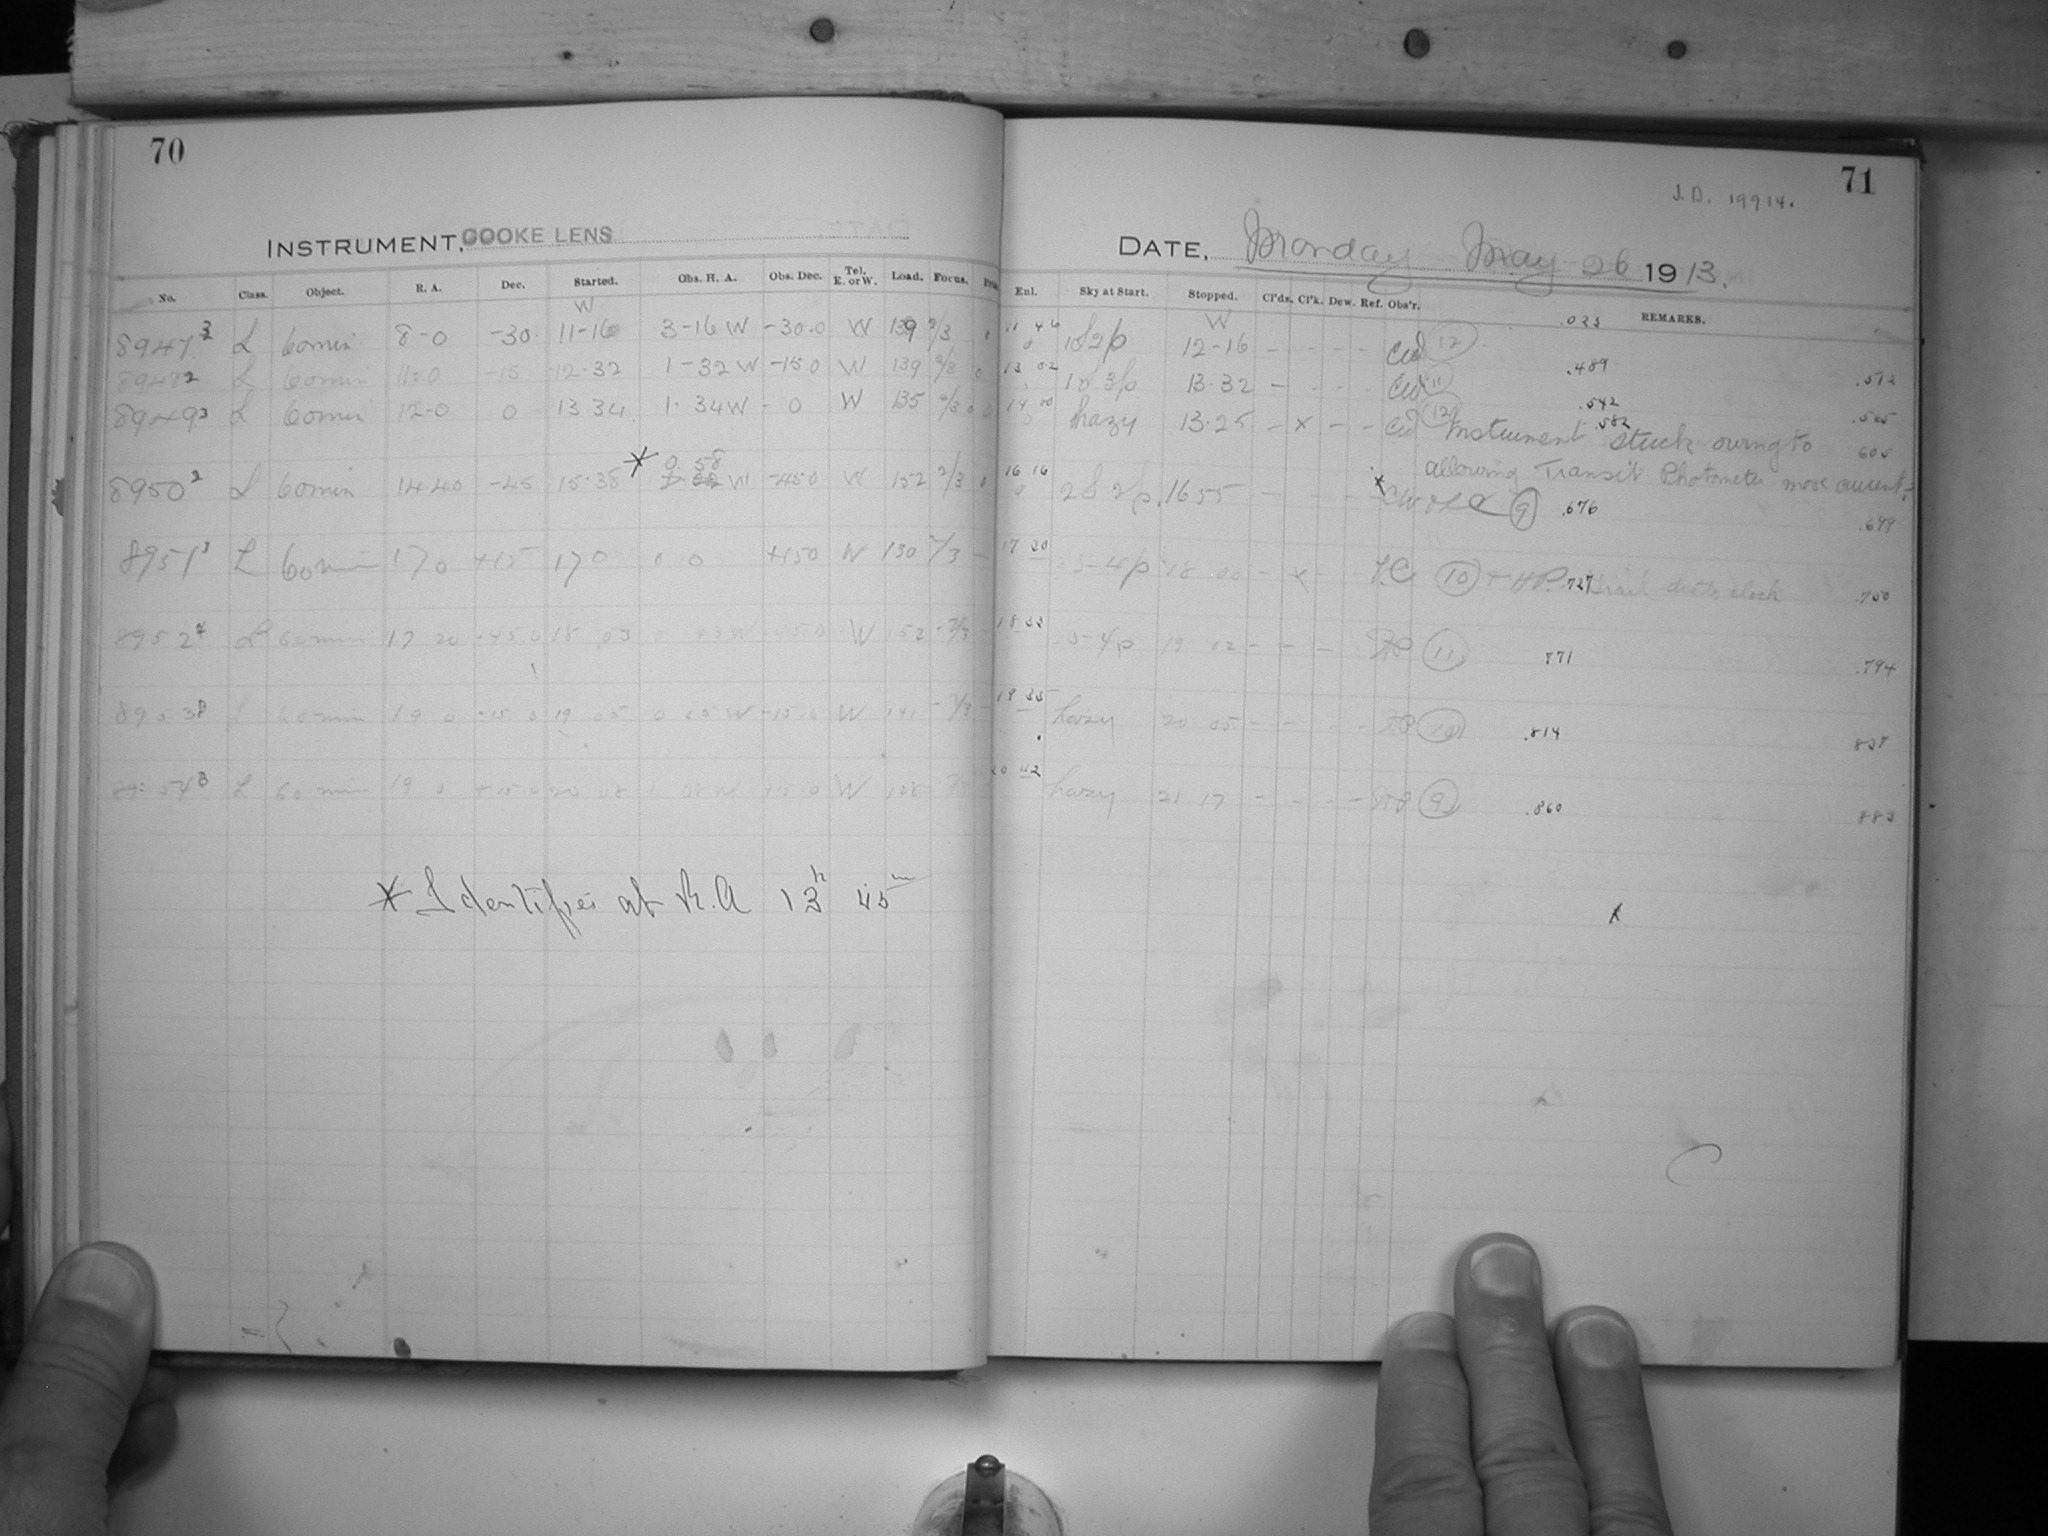 70
INSTRUMENT, COOKE LENS
No. Class. Object. R. A. Dec. Started. Obs. H. A. Obs. Dec. Tel. E. or W. Load. Focus.
W
8947 3 L 60 min 8-0 -30 11-16 3-16 W -30.0 W 139 2/3
8948 2 L 60 min 11-0 -15 12-32 1-32 W -15.0 W 139 2/3 0
8949 3 L 60 min 12-0 0 13 34 1-34 W - 0 W 135 2/3 0
* 0 58
8950 2 L 60 min 14-40 -45 15-38 W -45.0 W 152 2/3 0
8951 3 L 60 min 17 0 +15 17 0 0 0 +150 W 130 2/3 -
8952 4 L 60 min 17 20 -45 0 18 03 0 43 W -45.0 W 152 -2/3
L 60 min 19 0 -15 0 19 05 0 05 W -15.0 W 141 -2/3
L 60 min 19 0 +15.0 20 08 1 08 W W 128
* Identifies at R.A 13h 45m
71
J. D. 19914.
DATE, Monday May 26 1913.
Enl. Sky at Start. Stopped. Cl'ds. Cl'k. Dew. Ref. Obs'r. REMARKS.
W .023
11 46 12-16 - - - - CW 12
.489 .512
13 02 13.32 - - - - CW 11
.542 .565
14 00 hazy 13.25 - x - - CW 12 .582 605
Instrument stuck owing to
allowing Transit Photometer
16 16 1655 - - - 9 .676 .699
17 30 3-4p 18 00 - x - LC 10 + HP .727 .750
18 33 3-4p 19 02 - - - 11 771 .794
19 35 hazy 20 05 - - - - 10 .814 837
20 42 hazy 21 17 - - - - 9 .860 883